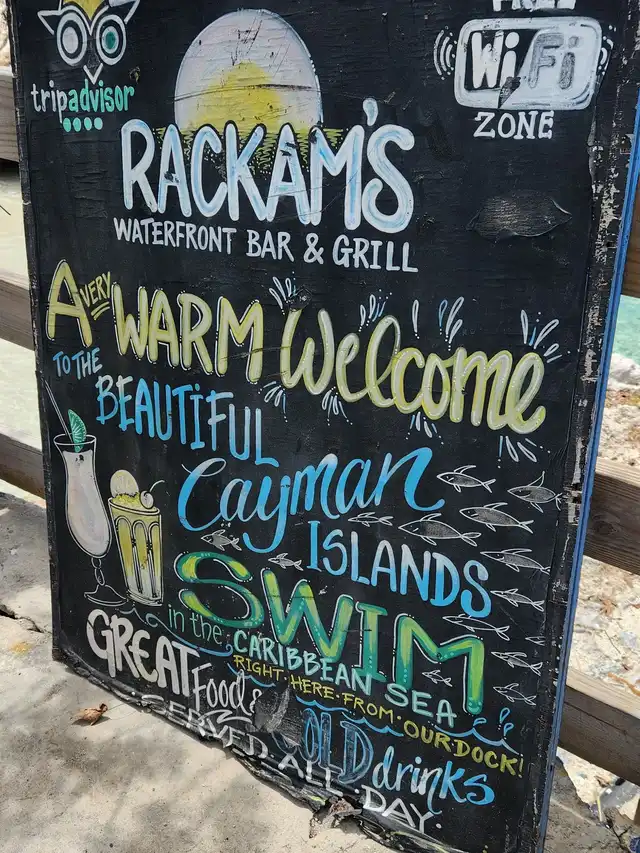 FREE
tripadvisor
WiFi
ZONE
RACKAM'S
WATERFRONT BAR & GRILL
A VERY WARM Welcome
TO THE
BEAUTIFUL
Cayman
ISLANDS
SWIM
in the CARIBBEAN SEA
RIGHT·HERE·FROM·OUR·DOCK!
GREAT Food & COLD drinks
SERVED ALL DAY.